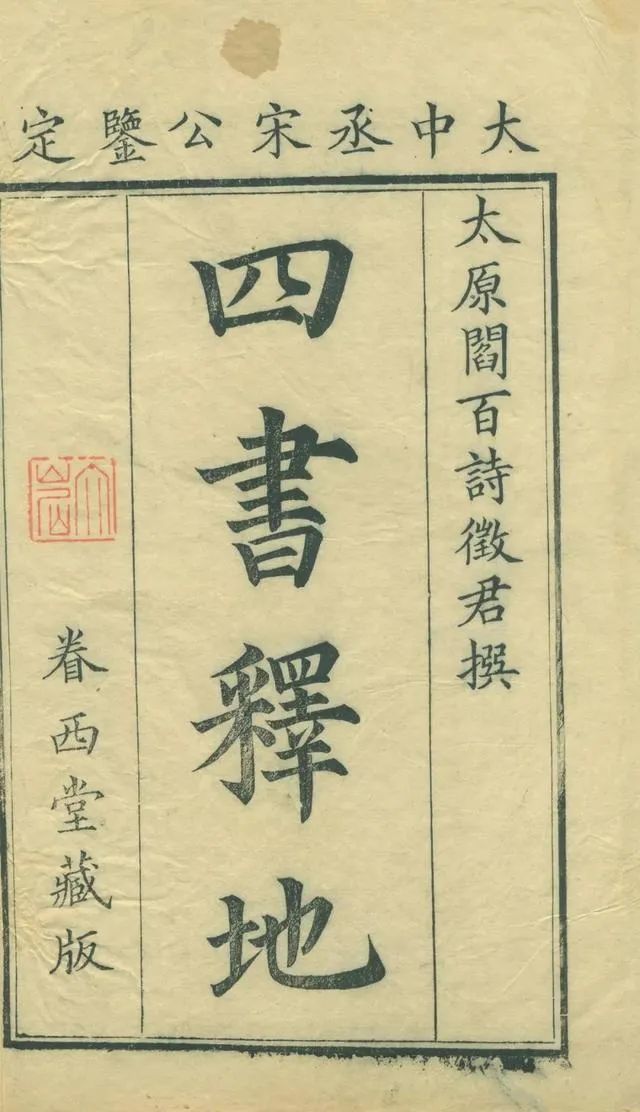 大中丞宋公鑒定
太原閻百詩徵君撰
四書釋地
眷西堂藏版